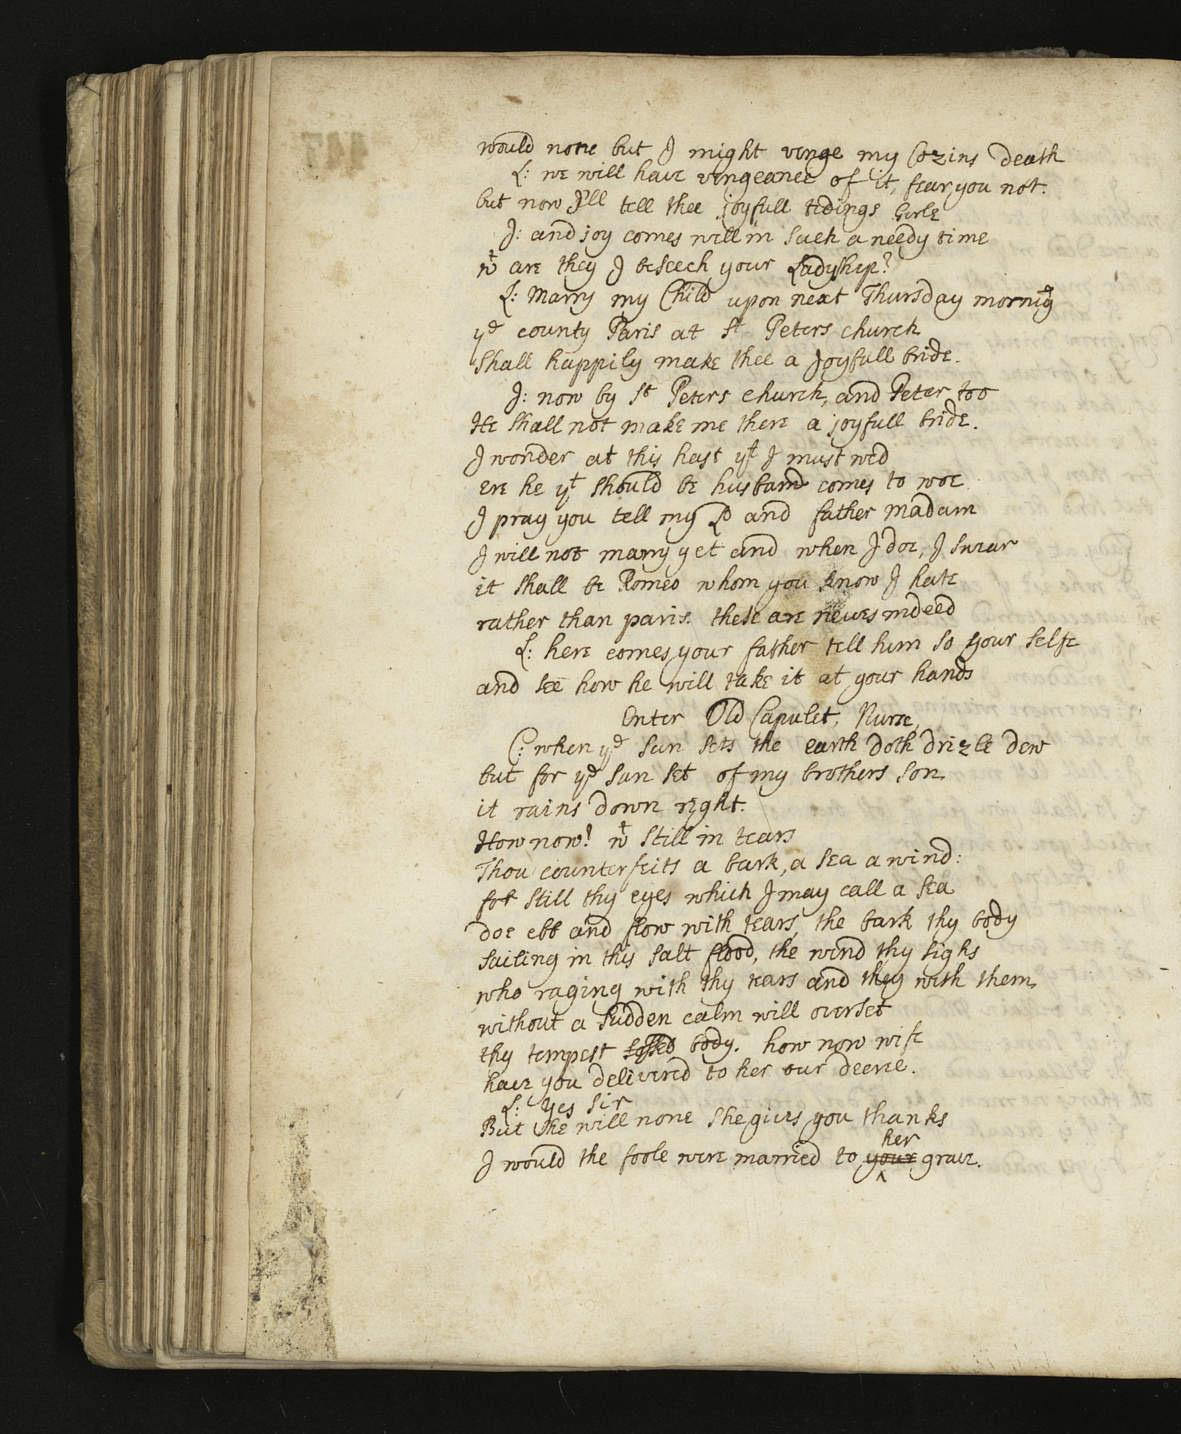 would none but I might venge my Cozins death
L: we will have vengeance of it, fear you not.
but now I'll tell thee joyfull tidings Girle
J: and joy comes well in such a needy time
wt are they I beseech your Ladyship?
L: Marry my Child upon next Thursday morning
ye county Paris at St Peters church
Shall happily make thee a Joyfull bride.
J: now by St Peters church, and Peter too
He shall not make me there a joyfull bride.
I wonder at this hast yt I must wed
ere he yt should be husband comes to woe
I pray you tell my Ld and father madam
I will not marry yet and when I doe, I swear
it shall be Romeo whom you know I hate
rather than paris. these are newes indeed
L: here comes your father tell him so your selfe
and see how he will take it at your hands
Enter Old Capulet, Nurse,
C: when ye sun sets the earth doth drizle dew
but for ye sun set of my brothers son
it rains down right.
How now! wt still in tears
Thou counterfeits a bark, a sea a wind:
for still thy eyes which I may call a sea
doe ebb and flow with tears, the bark thy body
sailing in this salt flood, the wind thy sighs
who raging with thy tears and they with them
without a sudden calm will overset
thy tempest tossed body. how now wife
have you delivered to her our decree.
L: Yes Sir
But she will none she gives you thanks
I would the foole were married to your her grave.